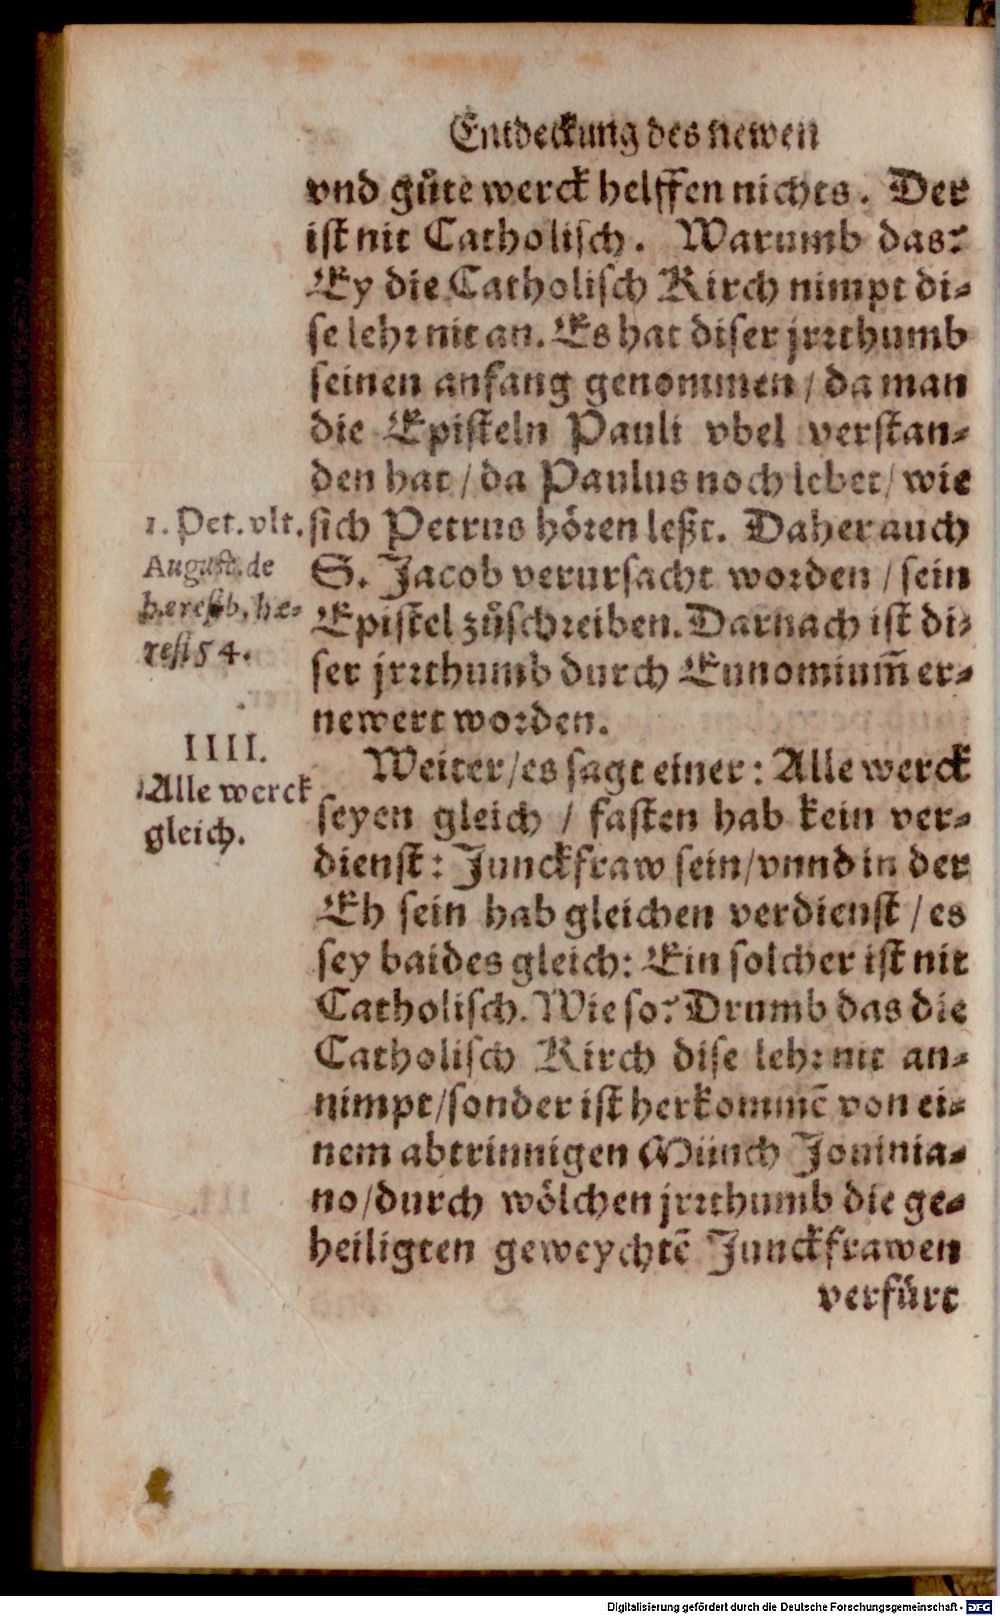 Entdeckung des newen
vnd gůte werck helffen nichts. Der
ist nit Catholisch. Warumb das?
Ey die Catholisch Kirch nimpt di-
se lehr nit an. Es hat diser jrrthumb
seinen anfang genommen / da man
die Episteln Pauli vbel verstan-
den hat / da Paulus noch lebet / wie
1. Pet. vlt.
sich Petrus hören leßt. Daher auch
August. de
S. Jacob verursacht worden / sein
hæresib. hæ-
Epistel zůschreiben. Darnach ist di-
resi 54.
ser jrrthumb durch Eunomium̃ er-
newert worden.
IIII.
Weiter / es sagt einer: Alle werck
Alle werck
seyen gleich / fasten hab kein ver-
gleich.
dienst: Junckfraw sein / vnnd in der
Eh sein hab gleichen verdienst / es
sey baides gleich: Ein solcher ist nit
Catholisch. Wie so? Drumb das die
Catholisch Kirch dise lehr nit an-
nimpt / sonder ist herkommẽ von ei-
nem abtrinnigen Münch Jouinia-
no / durch wölchen jrrthumb die ge-
heiligten geweychtẽ Junckfrawen
verfürt
Digitalisierung gefördert durch die Deutsche Forschungsgemeinschaft - DFG